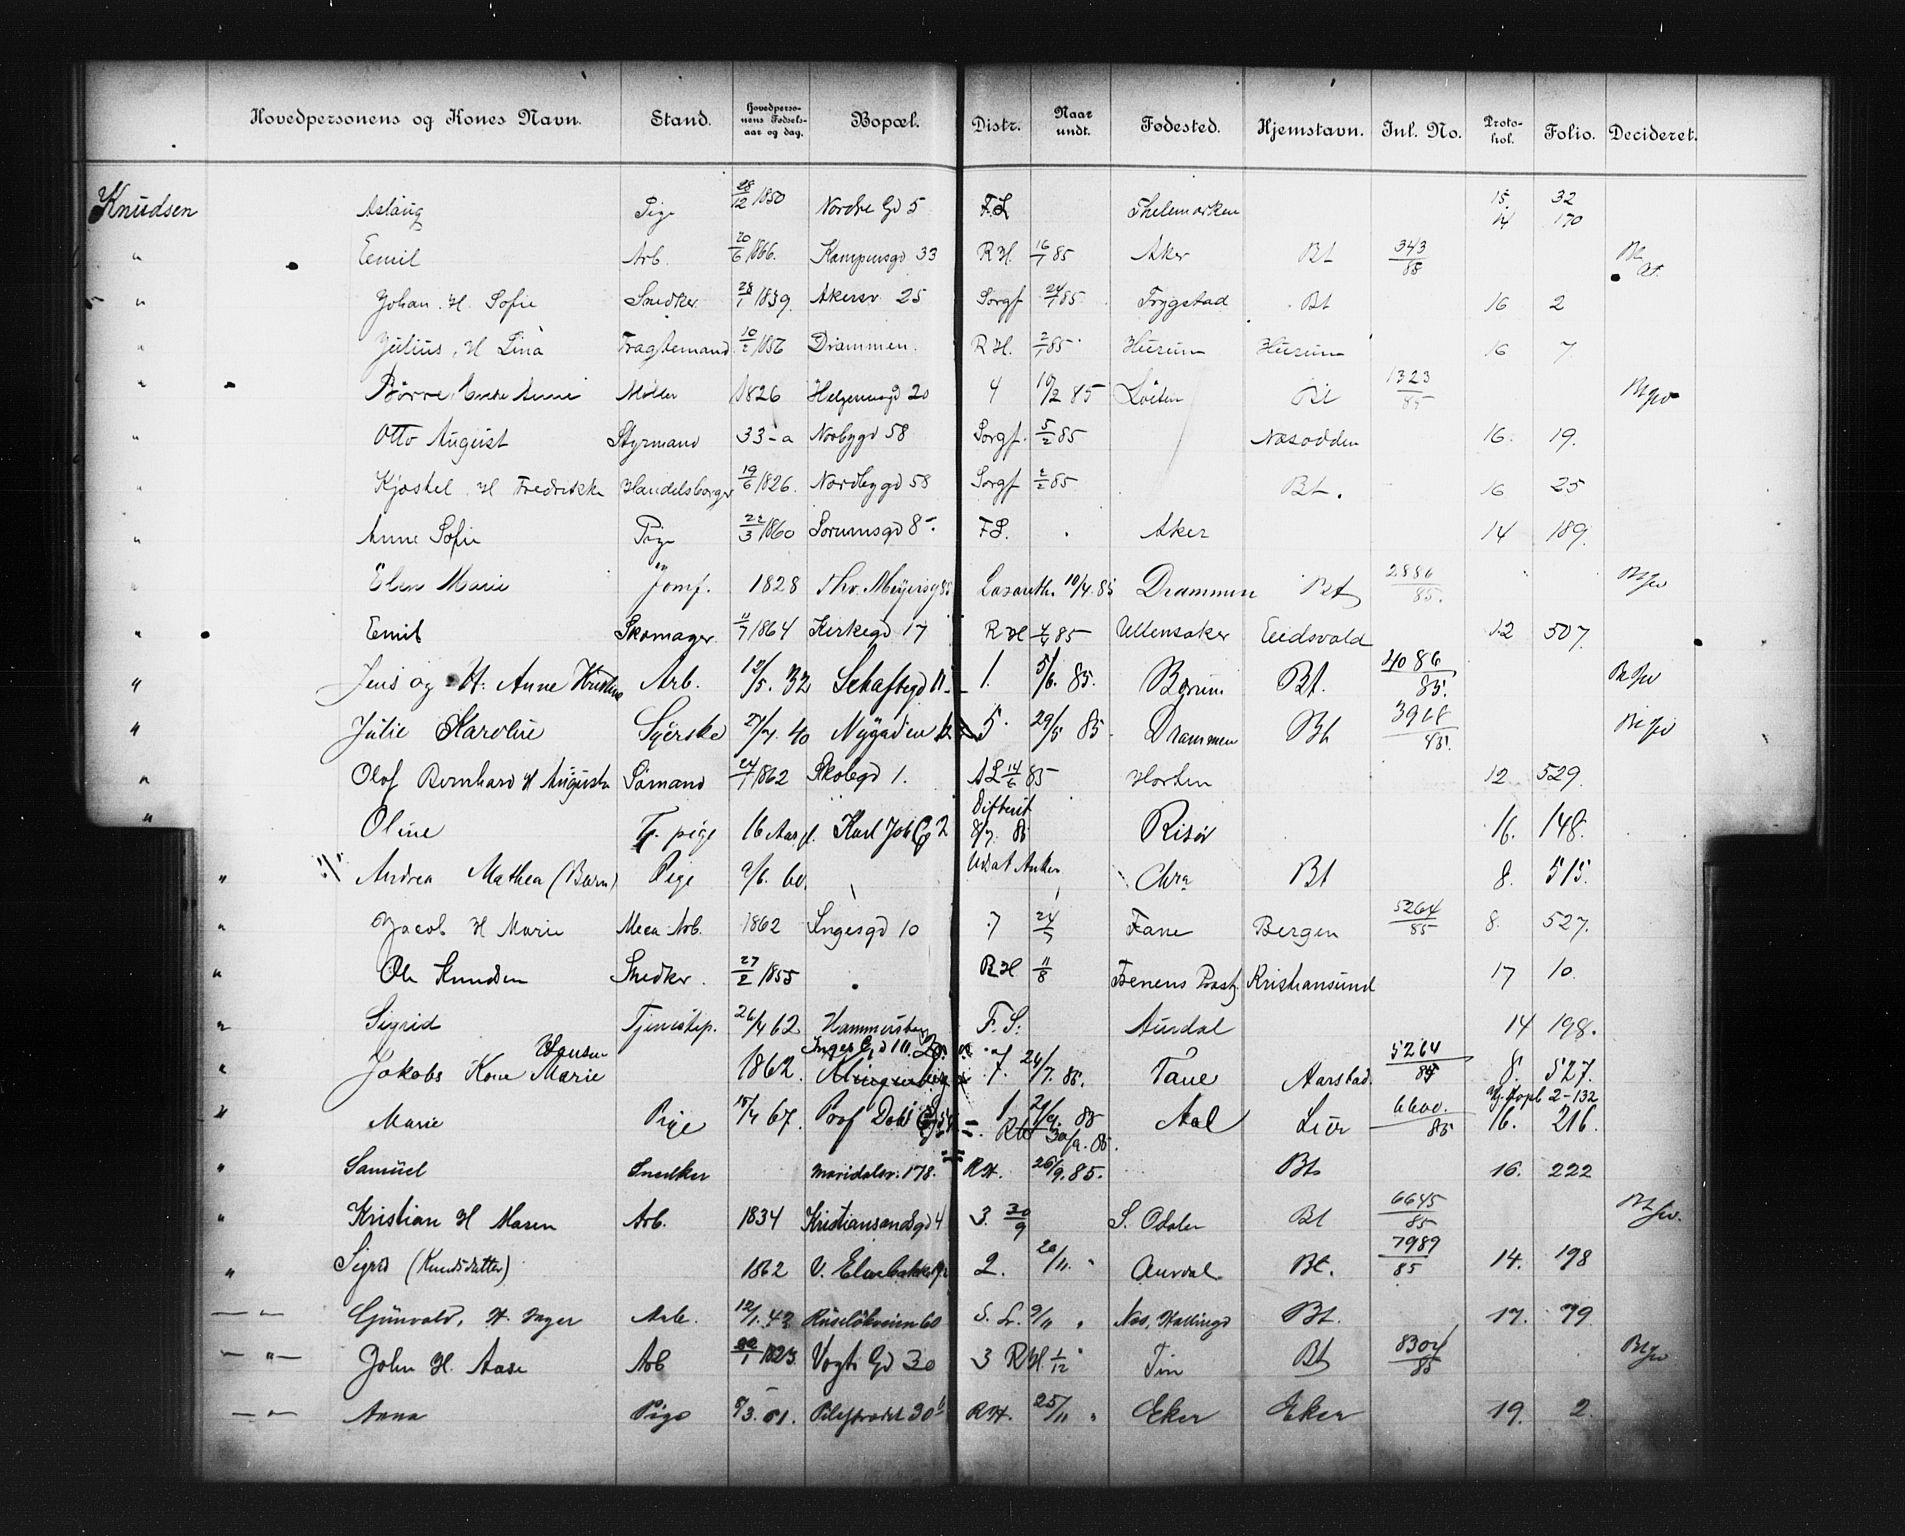 Hovedpersonens og Kones Navn. Stand. Hovedpersonens Fødselsaar og dag. Bopæl. Distr. Naar undt. Fødested. Hjemstavn. Inl. No. Protokol. Folio. Decideret.
Knudsen Aslaug Pige 28/12 1850 Nordre Gd 5 F.L Thelemarken 15. 32
14 170
" Emil Arb. 20/6 1866. Kampensgd 33 R H. 16/7 85 Aker Bt 343/85
" Johan . H. Sofie Snedker 28/1 1839. Akersv. 25 Sorgf 24/1 85 Trygstad Bt 16 2
" Julius, H Lina Fragtemand 10/2 1856 Drammen. R H. 2/1 85 Hurum Hurum 16 7
" Børre, Enke Anne Møller 1826 Helgensgd 20 4 10/2 85 Løiten Bt 1323/85
" Otto August Styrmand 33 - a Norbygd 58 Sorgf. 5/2 85 Næsodden 16. 19.
" Kjøstel . H Fredrikke Handelsborger 19/6 1826. Nordbygd 58 Sorgf 2/2 85 Bt. 16 25
" Anne Sofie Pige 22/3 1860 Sorumsgd 8 F.L. Aker 14 189
" Elen Marie Jomf. 1828 Thv. Meyersg 85 Lasareth. 10/4. 85 Drammen Bt 2886/85.
" Emil Skomager 11/7 1864 Kirkegd 17 R H 4/4 85 Ullensaker Eidsvold 12 507
" Jens og H. Anne Kristine Arb. 12/5. 32 Schaftegd 11 1. 5/6. 85. Bærum Bt. 4086/85.
" Julie Karoline Syerske 27/7. 40 Nygaden 12 5. 29/5 85. Drammen Bt 3918/85.
" Olaf Bernhard H Augusta Sømand 24/7 1862 Skolegd 1. A L 14/6 85 Horten 12 529
" Oline Tj. pige 16 Aar f. Karl Joh Gd 2 Difterit 8/7 85 Risør 16. 148.
" Andrea Mathea (Barn) Pige 9/6. 60. Udsat Anker Chra Bt 8. 515.
" Jacob H Marie Mek Arb. 1862 Ingesgd 10 7 24/7 Fane Bergen 5264/85 8. 527.
" Ole Knudsen Snedker. 27/2 1855 R H 11/8 Kristiansund 17 10.
" Sigrid Tjenestep. 26/4 62 Hammersborg F. L. Aurdal 14 198.
" Jakobs Kone Hansen Marie 1862. Inges Gd 10. 7. 24/7. 85. Fane Aarstad. 5264/85 8. 527.
" Marie Pige 15/4 67. Prof Dahls Gd 1 21/9. 85 Aal Lier 6600./85 2-132
R H 30/9. 85. 16. 216.
" Samuel Snedker Maridalsv. 178. R H. 26/9. 85. Bt 16. 222
" Kristian H Maren Arb. 1834 Kristiansandsgd 4 3. 30/9 S. Odalen Bt 6645/85
" Sigrid (Knudsdatter) 1862 V. Elvebakken 2. 20/11. " Aurdal Bt. 7989/85 14. 198
" Gunvald, H. Inger Arb. 12/1. 42 Ruseløkveien 60 S. L. 9/11 " Næs, Hallingd Bt. 17. 79
" John H. Aase Arb 1823. Vogts Gd 30 3 R H. 1/12 " Tin Bt 8304/85
" Anna Pige 9/3. 61. Pilestrædet 30 R H. 25/11 " Eker Eker 19. 2.